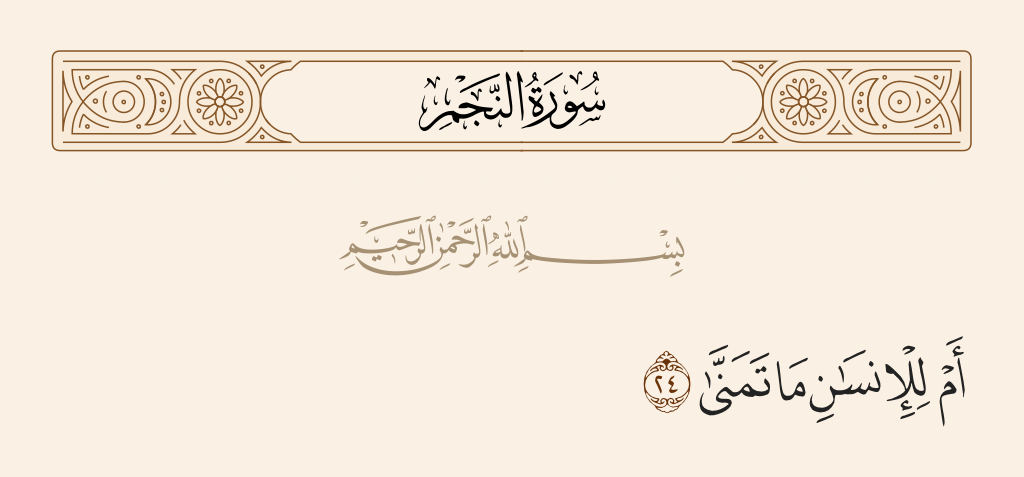 سُورَةُ النَّجْمِ
بِسْمِ ٱللَّهِ ٱلرَّحْمَٰنِ ٱلرَّحِيمِ
أَمْ لِلْإِنسَـٰنِ مَا تَمَنَّىٰ ٢٤